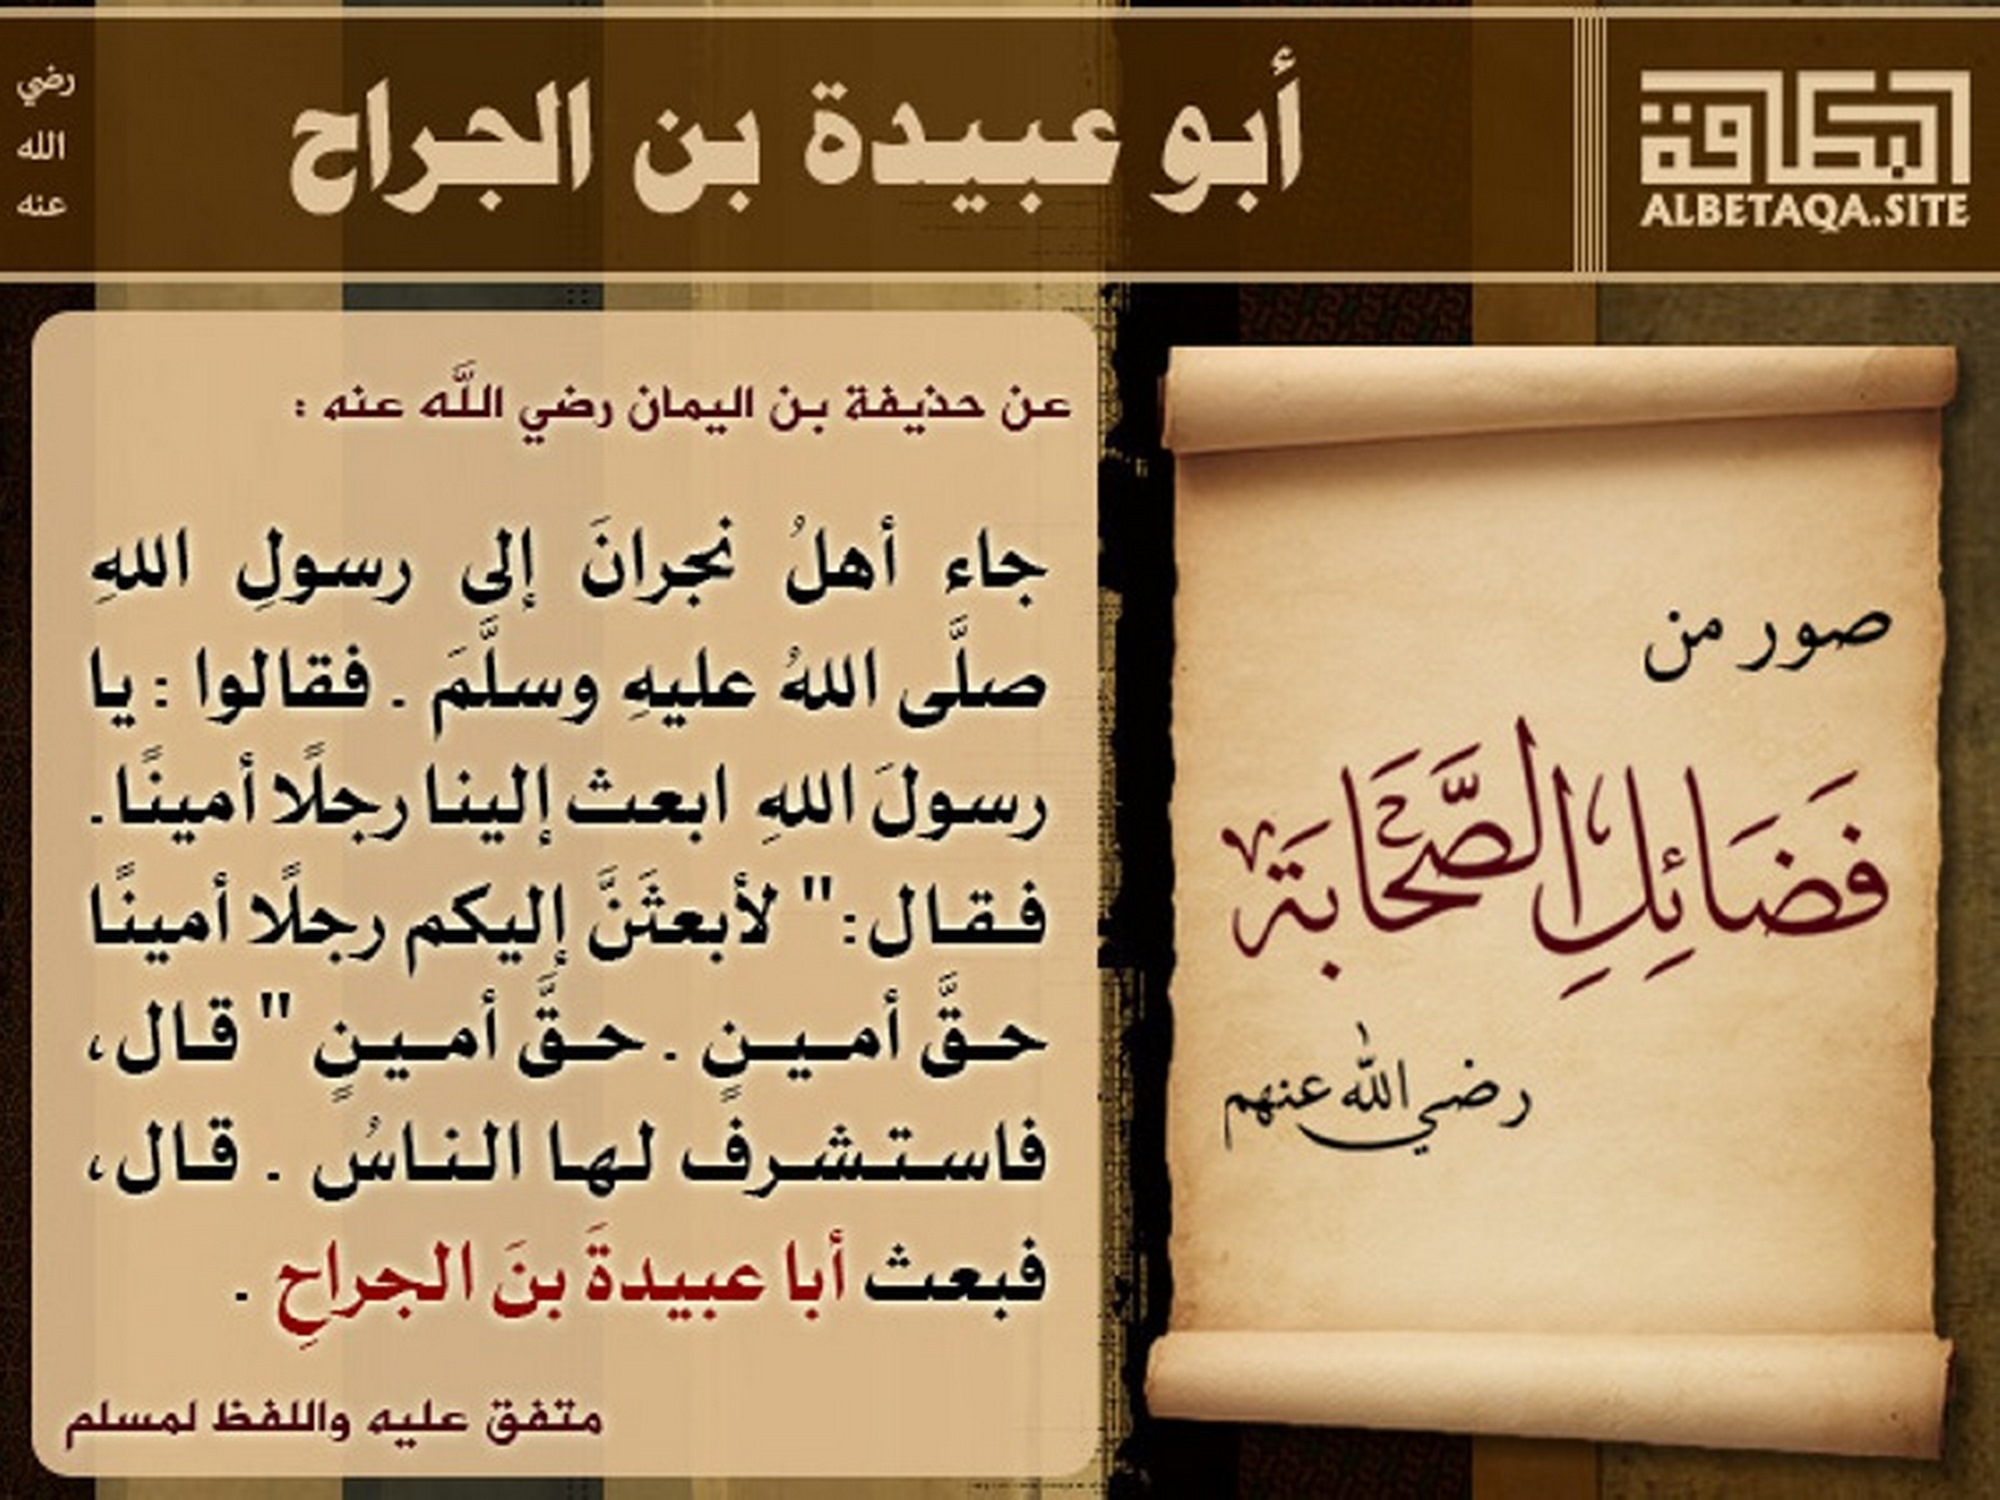 البطاقة
ALBETAQA.SITE
أبو عبيدة بن الجراح
رضي
الله
عنه
صور من
فَضَائِلِ الصَّحَابَة
رضي الله عنهم
عن حذيفة بن اليمان رضي اللَّه عنه :
جاء أهلُ نجرانَ إلى رسولِ اللهِ
صلَّى اللهُ عليهِ وسلَّمَ . فقالوا : يا
رسولَ اللهِ ابعث إلينا رجلًا أمينًا.
فقال:" لأبعثَنَّ إليكم رجلًا أمينًا
حقَّ أمينٍ . حقَّ أمينٍ " قال،
فاستشرف لها الناسُ . قال،
فبعث أبا عبيدةَ بنَ الجراحِ .
متفق عليه واللفظ لمسلم